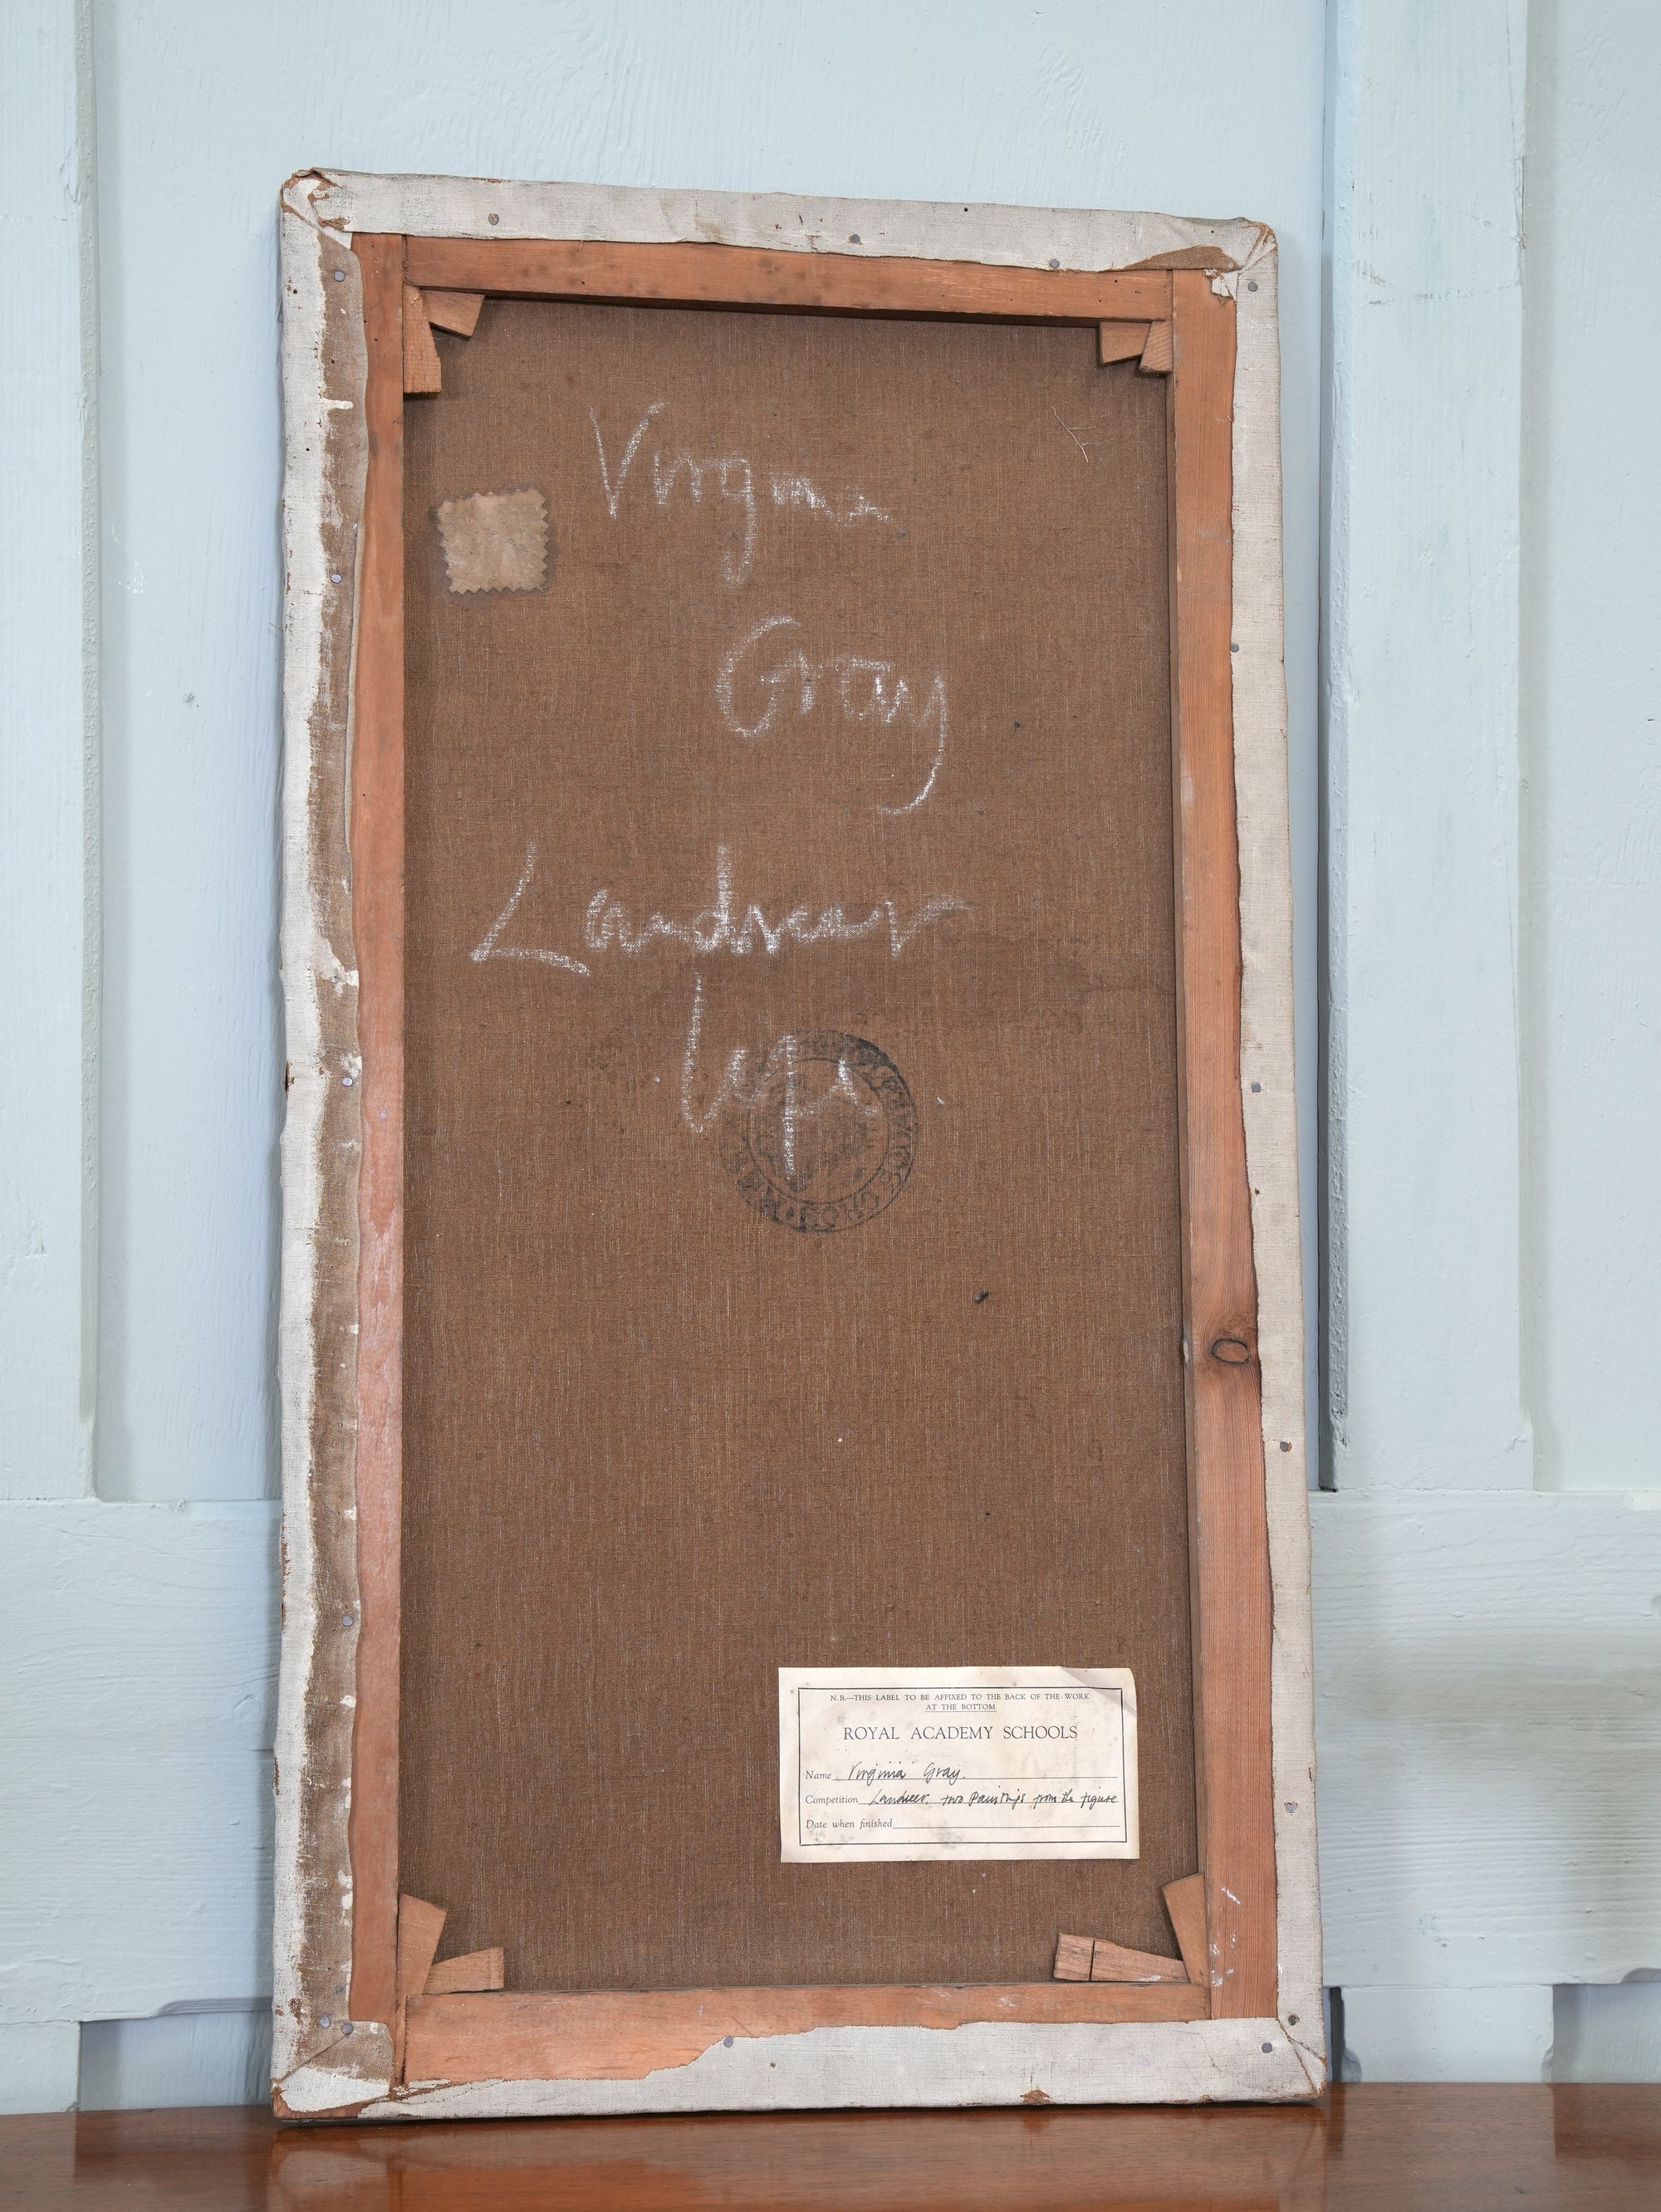 Virginia
Gray
Landseer
N.B.—THIS LABEL TO BE AFFIXED TO THE BACK OF THE WORK
AT THE BOTTOM
ROYAL ACADEMY SCHOOLS
Name Virginia Gray.
Competition Landseer. two Paintings from the figure
Date when finished